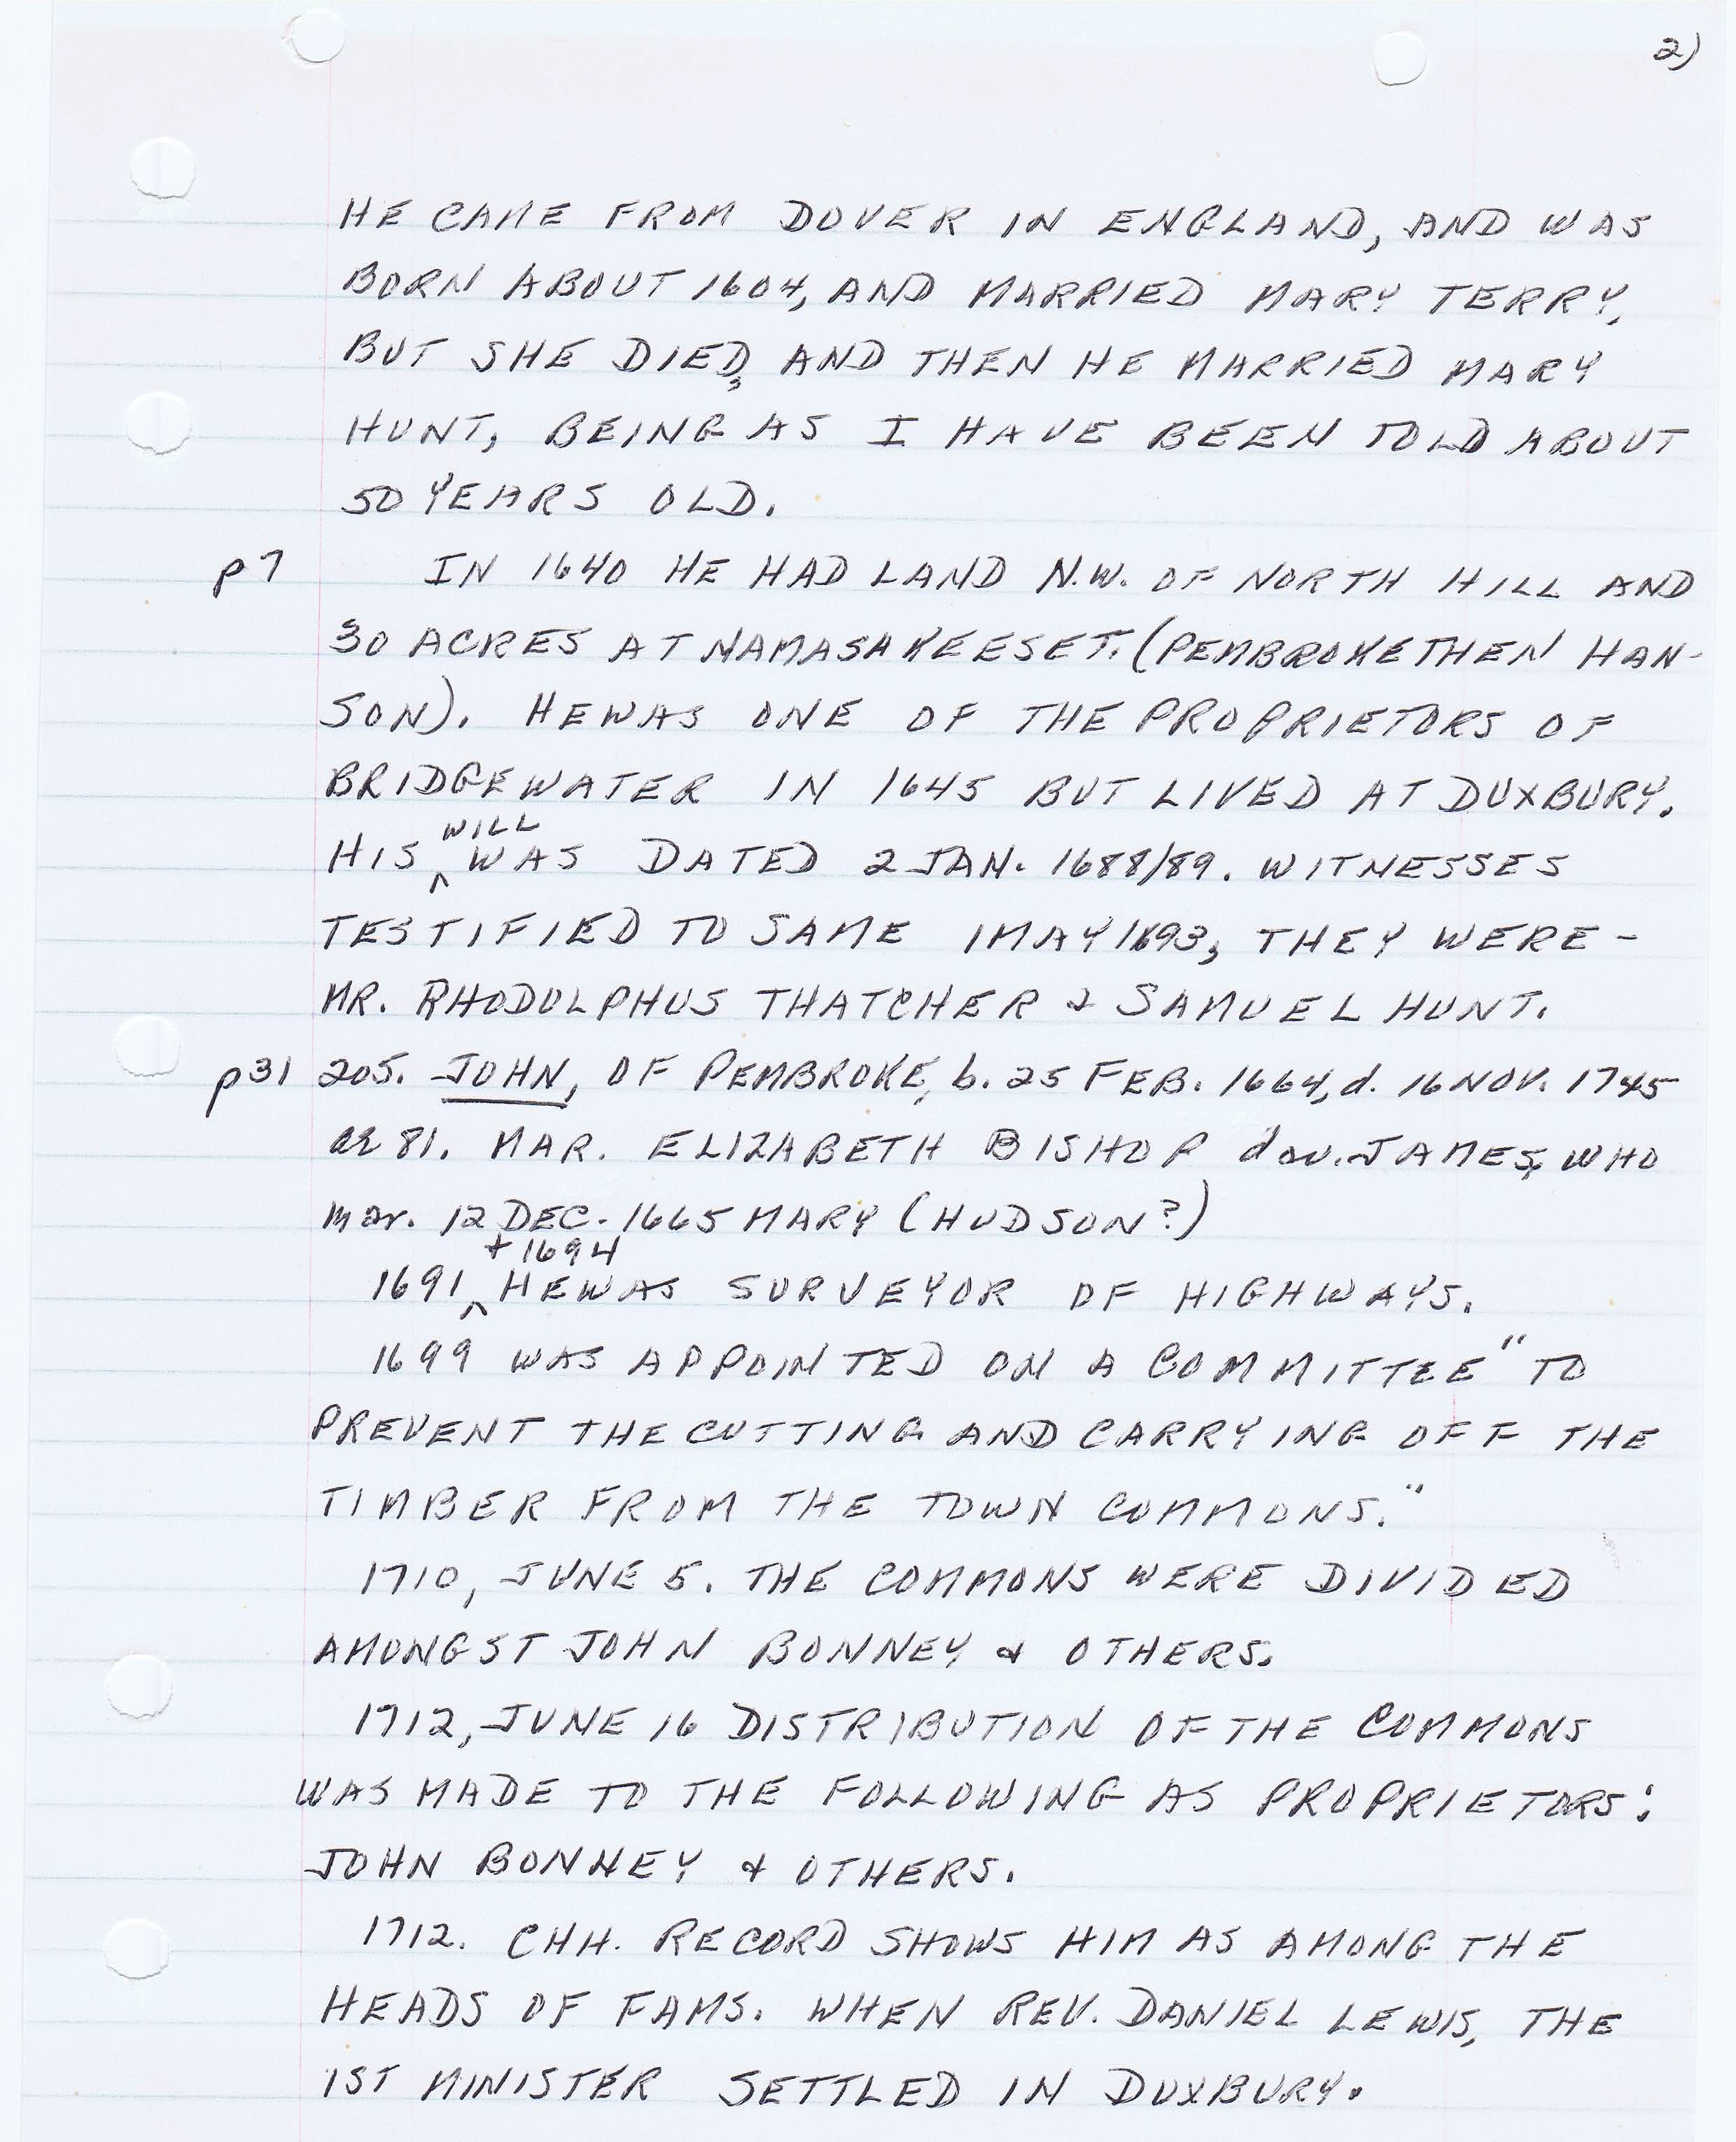 2)
HE CAME FROM DOVER IN ENGLAND, AND WAS
BORN ABOUT 1604, AND MARRIED MARY TERRY,
BUT SHE DIED, AND THEN HE MARRIED MARY
HUNT, BEING AS I HAVE BEEN TOLD ABOUT
50 YEARS OLD.
p7 IN 1640 HE HAD LAND N.W. OF NORTH HILL AND
30 ACRES AT NAMASAKEESET. (PEMBROKE THEN HAN-
SON). HE WAS ONE OF THE PROPRIETORS OF
BRIDGEWATER IN 1645 BUT LIVED AT DUXBURY.
HIS ^WILL WAS DATED 2 JAN. 1688/89. WITNESSES
TESTIFIED TO SAME 1 MAY 1693, THEY WERE -
MR. RHODOLPHUS THATCHER & SAMUEL HUNT.
p31 205. JOHN, OF PEMBROKE, b. 25 FEB. 1664, d. 16 NOV. 1745
ae 81. MAR. ELIZABETH BISHOP dau. JAMES, WHO
mar. 12 DEC. 1665 MARY (HUDSON?)
1691 ^+ 1694 HE WAS SURVEYOR OF HIGHWAYS.
1699 WAS APPOINTED ON A COMMITTEE "TO
PREVENT THE CUTTING AND CARRYING OFF THE
TIMBER FROM THE TOWN COMMONS."
1710, JUNE 5. THE COMMONS WERE DIVIDED
AMONGST JOHN BONNEY & OTHERS.
1712, JUNE 16 DISTRIBUTION OF THE COMMONS
WAS MADE TO THE FOLLOWING AS PROPRIETORS:
JOHN BONNEY & OTHERS.
1712. CHH. RECORD SHOWS HIM AS AMONG THE
HEADS OF FAMS. WHEN REV. DANIEL LEWIS, THE
1ST MINISTER SETTLED IN DUXBURY.